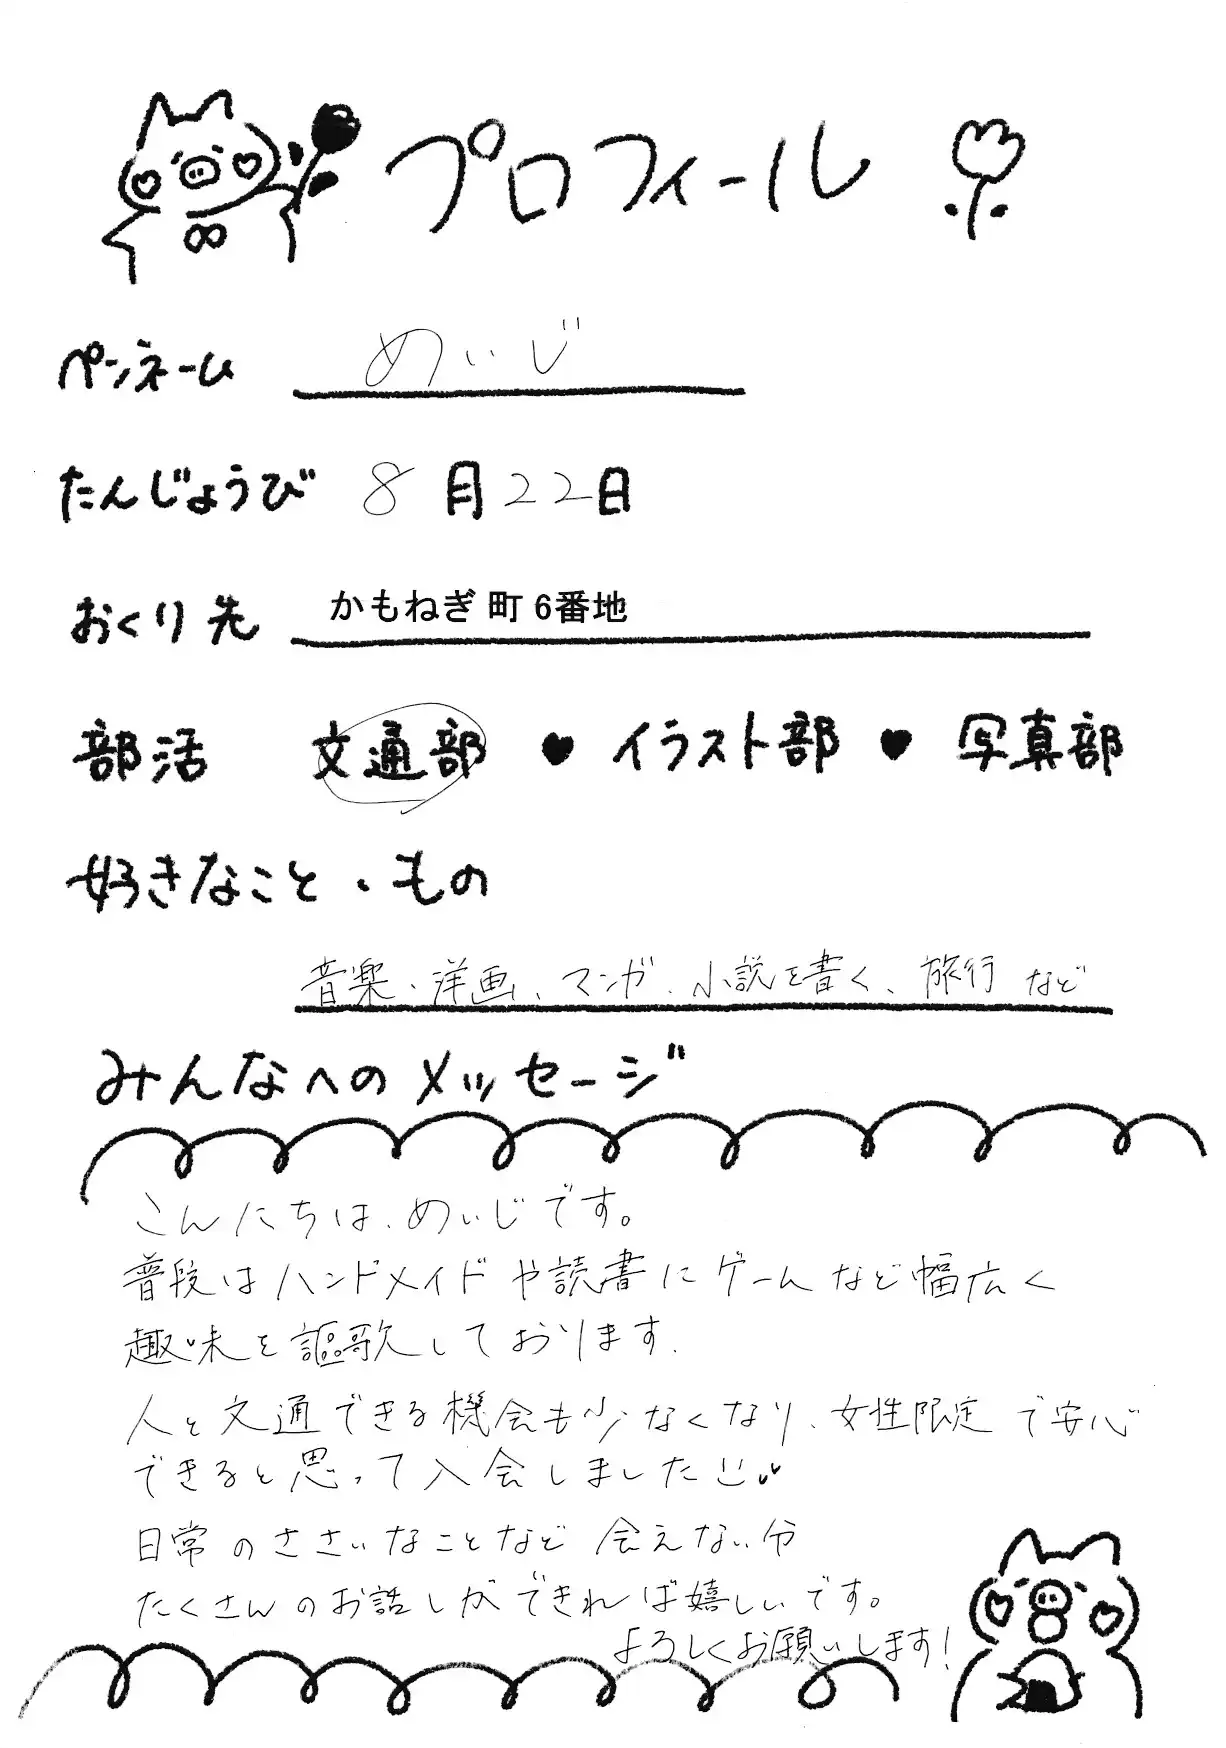 プロフィール
ペンネーム めいじ
たんじょうび 8月22日
おくり先 かもねぎ町6番地
部活 文通部 ♥ イラスト部 ♥ 写真部
好きなこと・もの
音楽、洋画、マンガ、小説を書く、旅行など
みんなへのメッセージ
こんにちは、めいじです。
普段はハンドメイドや読書にゲームなど幅広く
趣味を謳歌しております。
人と文通できる機会も少なくなり、女性限定で安心
できると思って入会しました
日常のささいなことなど 会えない分
たくさんのお話しができれば嬉しいです。
よろしくお願いします!